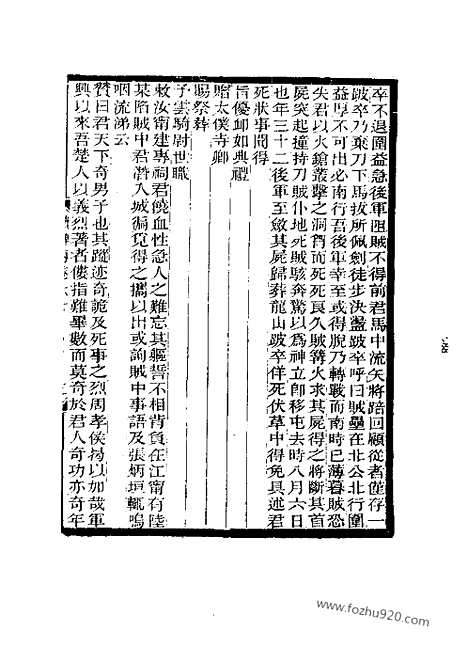 卒不退圍益急後軍阻賊不得前君馬中流矢將踣回顧從者僅存一
跛卒乃棄刀下馬拔所佩劍徒步決盪跛卒呼曰賊壘在北公北行圍
益厚不可出必南行吾後軍幸至或得脫乃轉戰而南時已薄暮賊恐
失君以火鎗叢擊之洞胷而死死良久賊篝火求其屍得之將斷其首
屍突起撞持刀賊仆地死賊駭奔驚以爲神立卽移屯去時八月六日
也年三十二後軍至斂其屍歸葬龍山跛卒佯死伏草中得免具述君
死狀事聞得
旨優卹如典禮
贈太僕寺卿
賜祭葬
予雲騎尉世職
敕汝甯建專祠君饒血性急人之難忘其軀誓不相背負在江甯有陸
某陷賊中君潛入城徧覓得之攜以出或詢賊中事語及張炳垣輒嗚
咽流涕云
贊曰君天下奇男子也其蹤迹奇詭及死事之烈周孝侯何以如哉軍
興以來吾楚人以義烈著者僂指難畢數而莫奇於君人奇功亦奇年
www.fozhu920.com